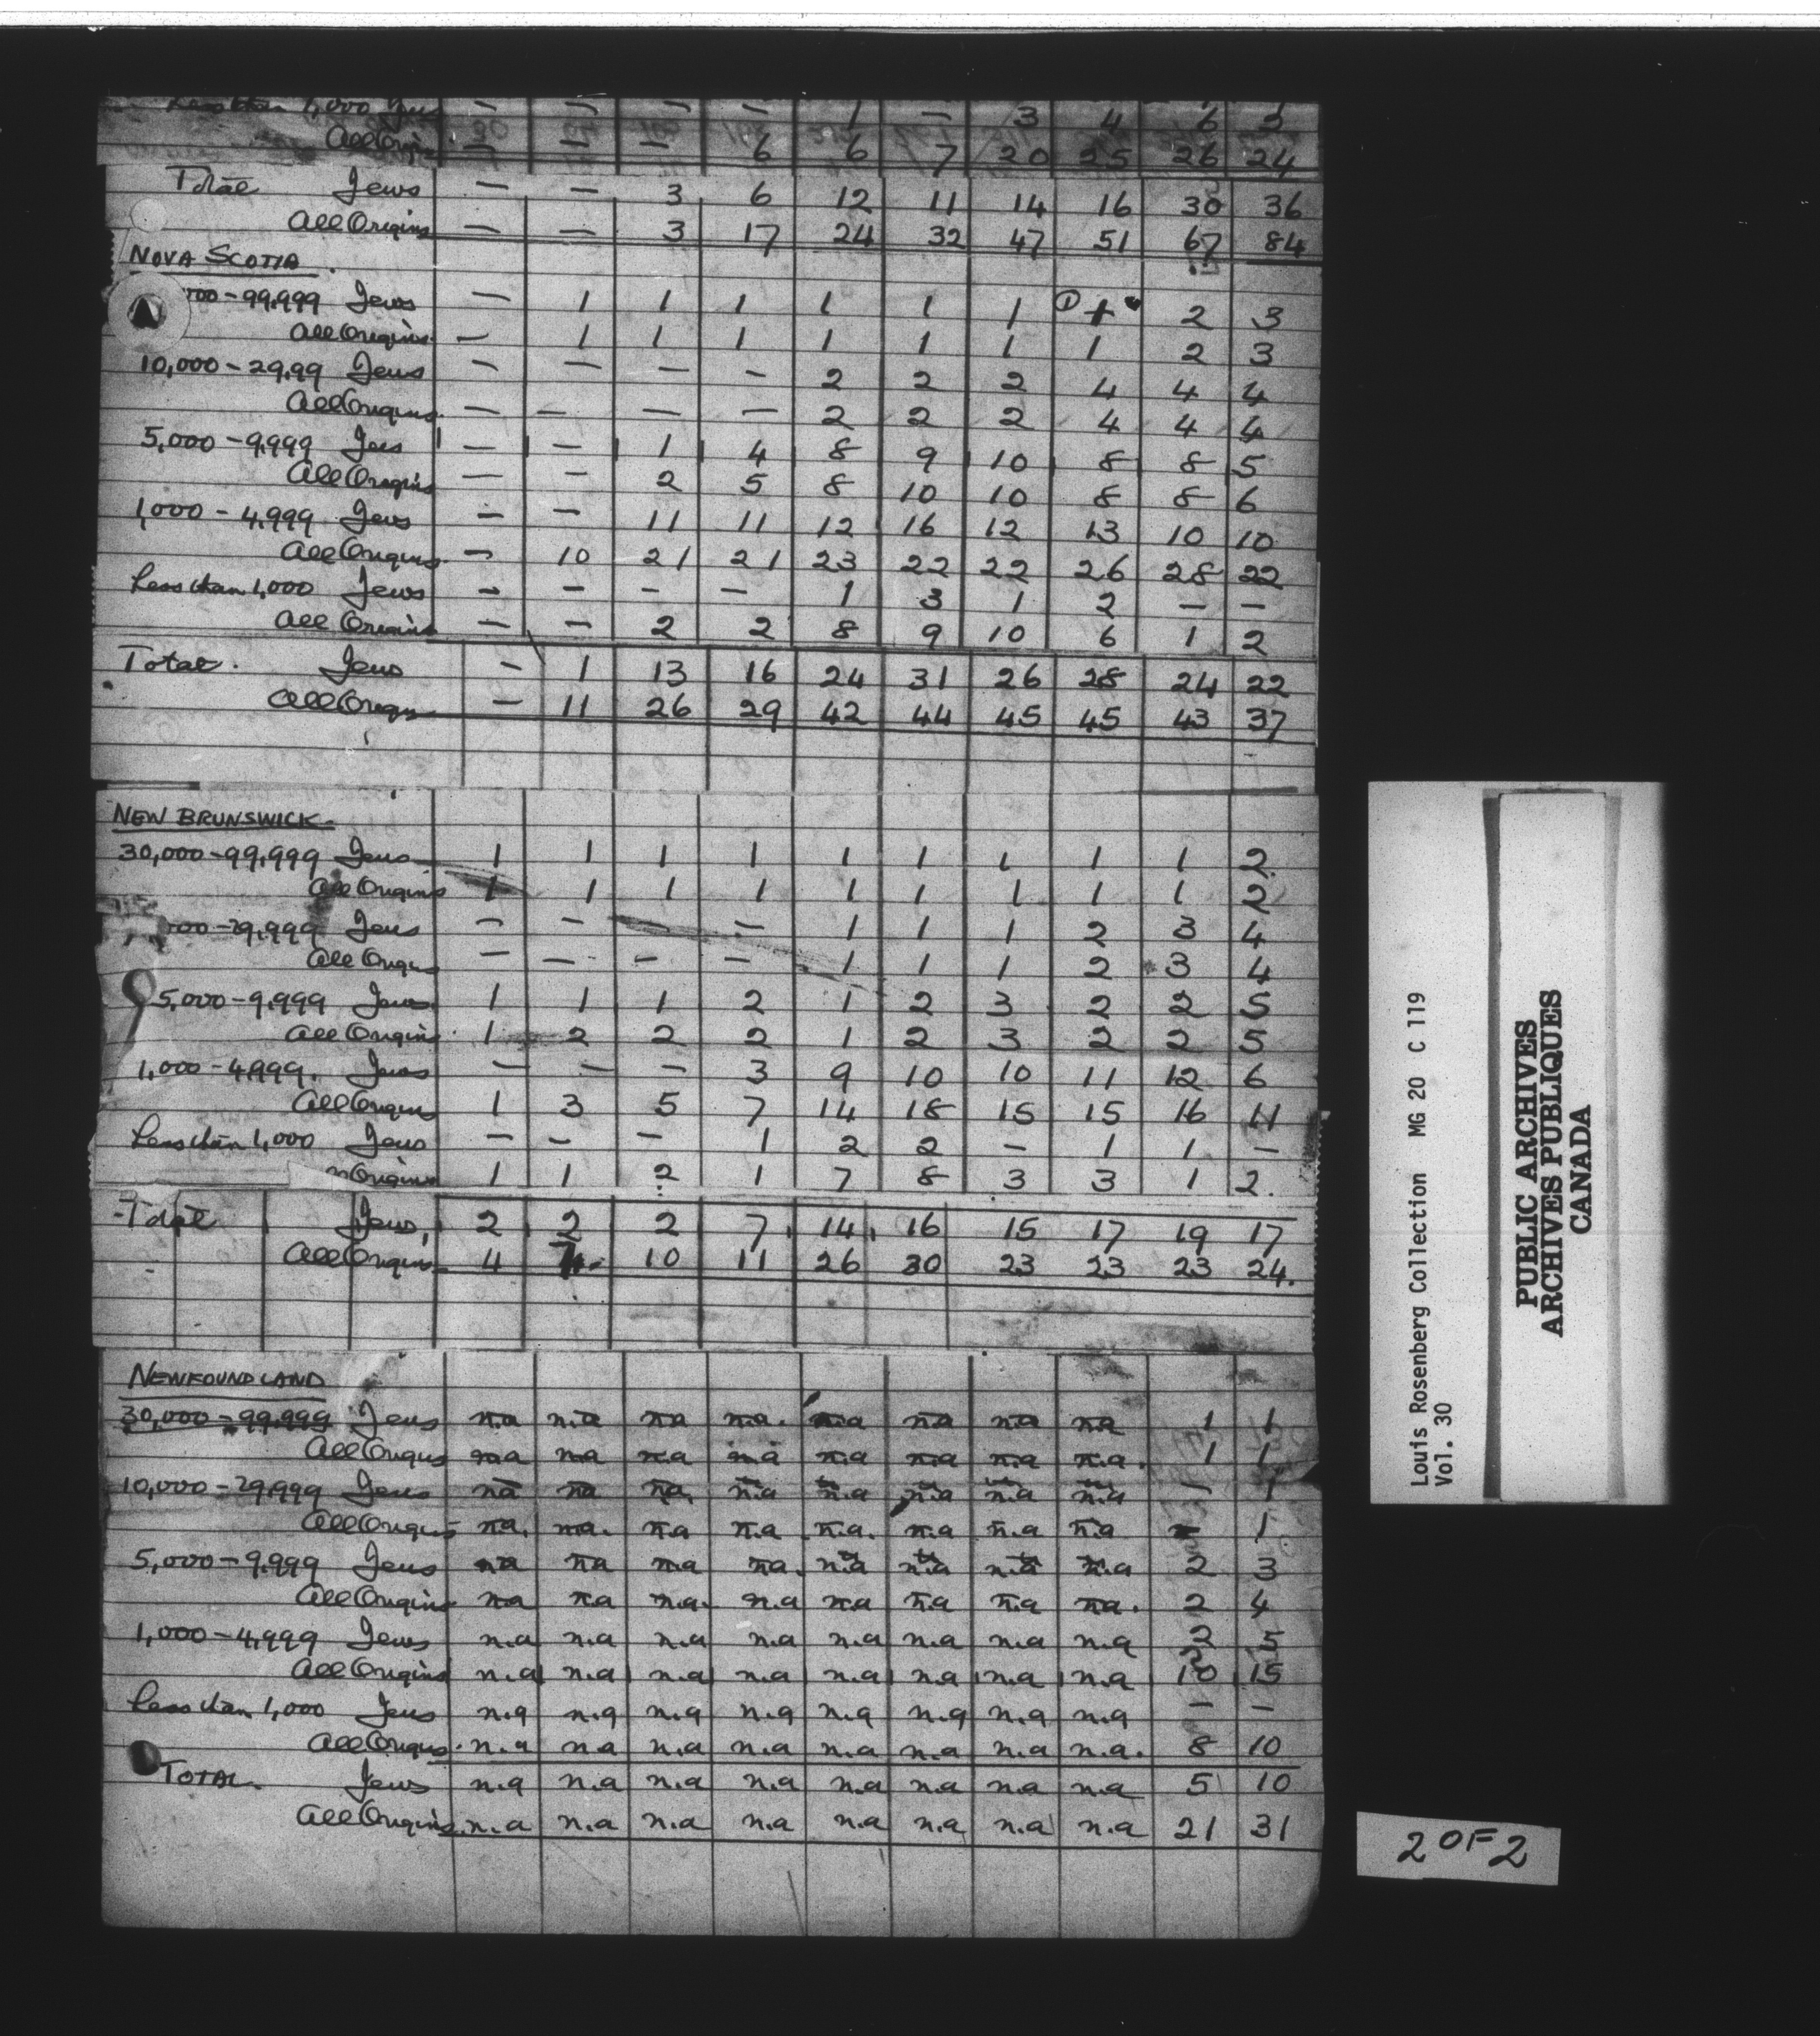 Less than 1,000 Jews — — — — 1 — 3 4 6 5
All Origins — — — 6 6 7 20 25 26 24
Total Jews — — 3 6 12 11 14 16 30 36
All Origins — — 3 17 24 32 47 51 67 84
NOVA SCOTIA
000-99,999 Jews — 1 1 1 1 1 1 ① 1 2 3
All Origins — 1 1 1 1 1 1 1 2 3
10,000-29,99 Jews — — — — 2 2 2 4 4 4
All Origins — — — — 2 2 2 4 4 4
5,000-9,999 Jews — — 1 4 8 9 10 8 8 5
All Origins — — 2 5 8 10 10 8 8 6
1,000-4,999 Jews — — 11 11 12 16 12 13 10 10
All Origins — 10 21 21 23 22 22 26 28 22
Less than 1,000 Jews — — — — 1 3 1 2 — —
All Origins — — 2 2 8 9 10 6 1 2
Total. Jews — 1 13 16 24 31 26 28 24 22
All Origins — 11 26 29 42 44 45 45 43 37
NEW BRUNSWICK
30,000-99,999 Jews 1 1 1 1 1 1 1 1 1 2
All Origins 1 1 1 1 1 1 1 1 1 2
000-29,999 Jews — — — — 1 1 1 2 3 4
All Origins — — — — 1 1 1 2 3 4
5,000-9,999 Jews 1 1 1 2 1 2 3 2 2 5
All Origins 1 2 2 2 1 2 3 2 2 5
1,000-4,999. Jews — — — 3 9 10 10 11 12 6
All Origins 1 3 5 7 14 18 15 15 16 11
Less than 1,000 Jews — — — 1 2 2 — 1 1 —
Origins 1 1 2 1 7 8 3 3 1 2.
Total Jews 2 2 2 7 14 16 15 17 19 17
All Origins 4 7 10 11 26 30 23 23 23 24.
NEWFOUNDLAND
30,000-99,999 Jews n.a n.a n.a n.a. n.a n.a n.a n.a 1 1
All Origins n.a n.a n.a n.a n.a n.a n.a n.a. 1 1
10,000-29,999 Jews n.a n.a n.a. n.a n.a n.a n.a n.a — 1
All Origins n.a. n.a. n.a n.a n.a. n.a n.a n.a — 1
5,000-9,999 Jews n.a n.a n.a n.a. n.a n.a n.a n.a 2 3
All Origins n.a n.a n.a. n.a n.a n.a n.a n.a. 2 4
1,000-4,999 Jews n.a n.a n.a n.a n.a n.a n.a n.a 2 5
All Origins n.a n.a n.a n.a n.a n.a n.a n.a 10 15
Less than 1,000 Jews n.a n.a n.a n.a n.a n.a n.a n.a — —
All Origins. n.a n.a n.a n.a n.a n.a n.a n.a. 8 10
TOTAL. Jews n.a n.a n.a n.a n.a n.a n.a n.a 5 10
All Origins n.a n.a n.a n.a n.a n.a n.a n.a 21 31
Louis Rosenberg Collection MG 20 C 119
Vol. 30
PUBLIC ARCHIVES
ARCHIVES PUBLIQUES
CANADA
2 OF 2